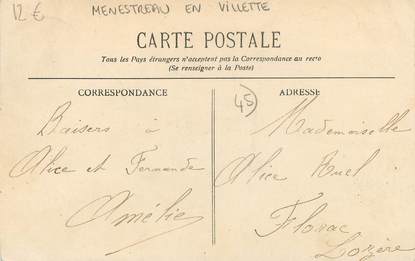 12 €
MENESTREAU EN VILLETTE
CARTE POSTALE
Tous les Pays étrangers n'acceptent pas la Correspondance au recto
(Se renseigner à la Poste)
CORRESPONDANCE
Baisers à
Alice et Fernande
Amélie
ADRESSE
45
Mademoiselle
Alice
Florac
Lozère